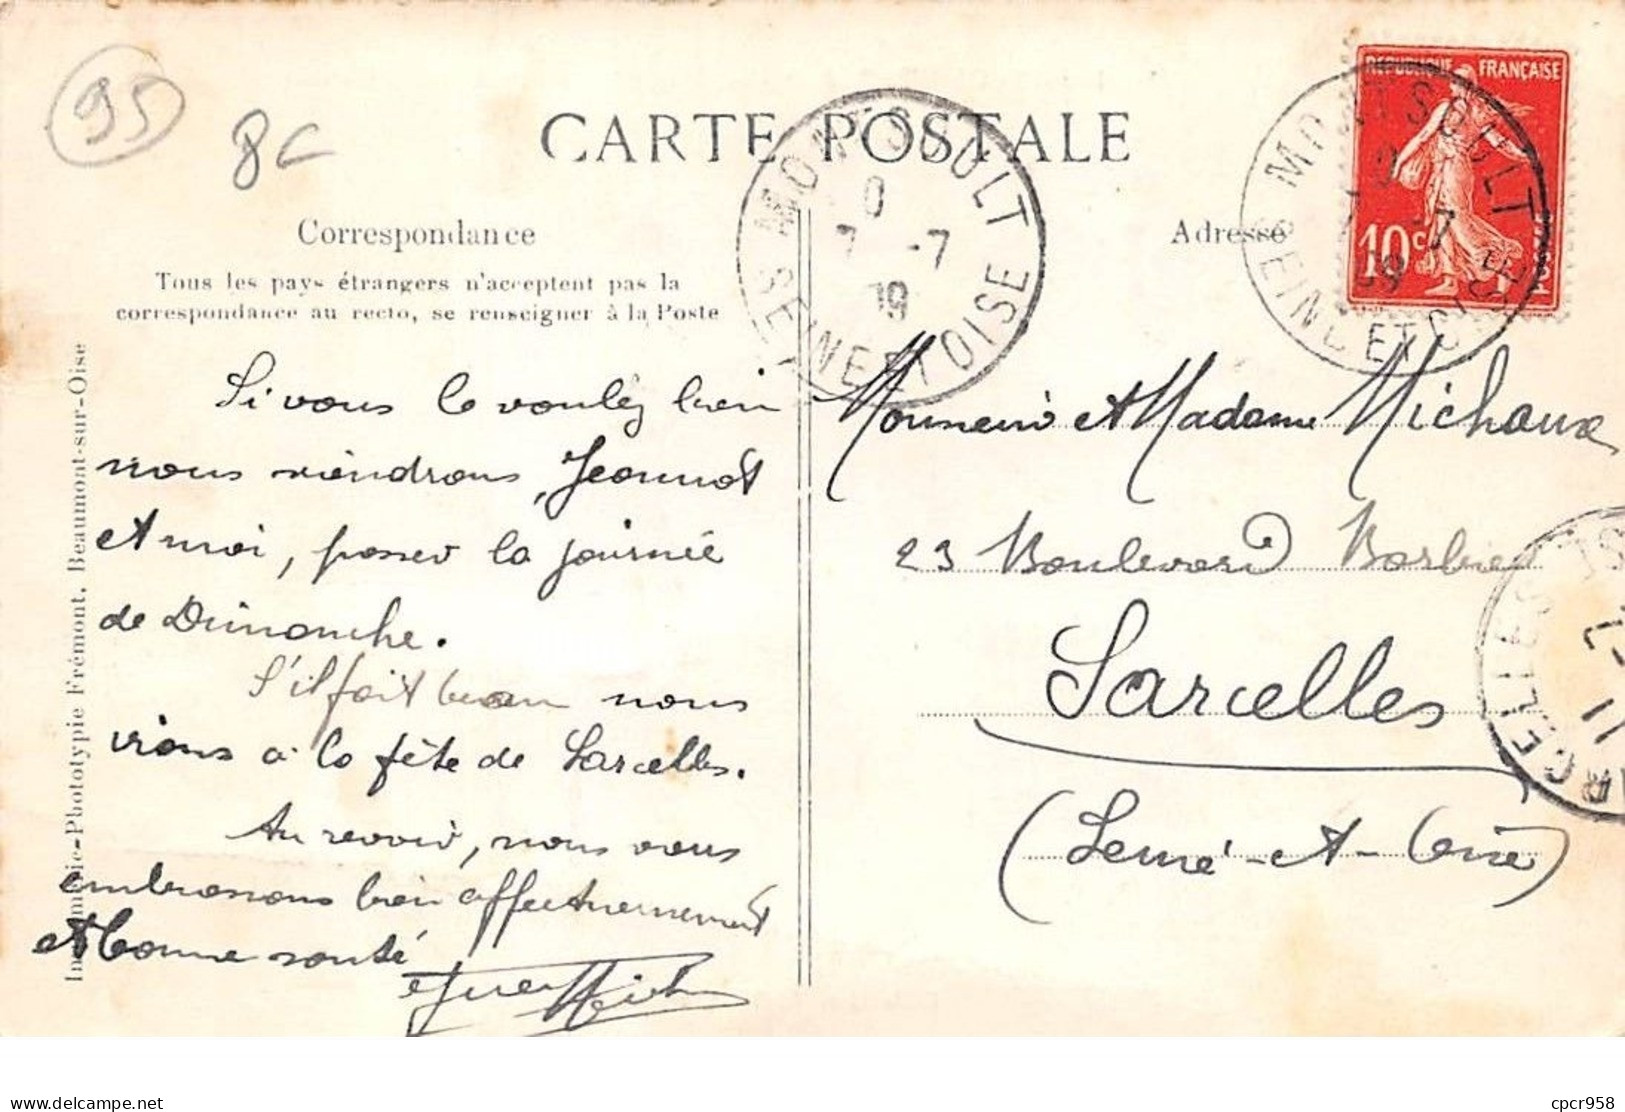 95
8c
CARTE POSTALE
Correspondance
Tous les pays étrangers n'acceptent pas la
correspondance au recto, se renseigner à la Poste
Si vous le voulez bien
nous viendrons, Jeannot
et moi, passer la journée
de Dimanche.
S'il fait beau nous
irons à la fête de Sarcelles.
Au revoir, nous vous
embrassons bien affectueusement
et bonne santé
Phototypie Frémont, Beaumont-sur-Oise
MONTSOULT
7 -7
SEINE ET OISE
Adresse
REPUBLIQUE FRANÇAISE
10c
MONTSOULT
-7
09
SEINE ET OISE
Monsieur et Madame Michaux
23 Boulevard Barbier
Sarcelles
(Seine-et-Oise)
cpcr958